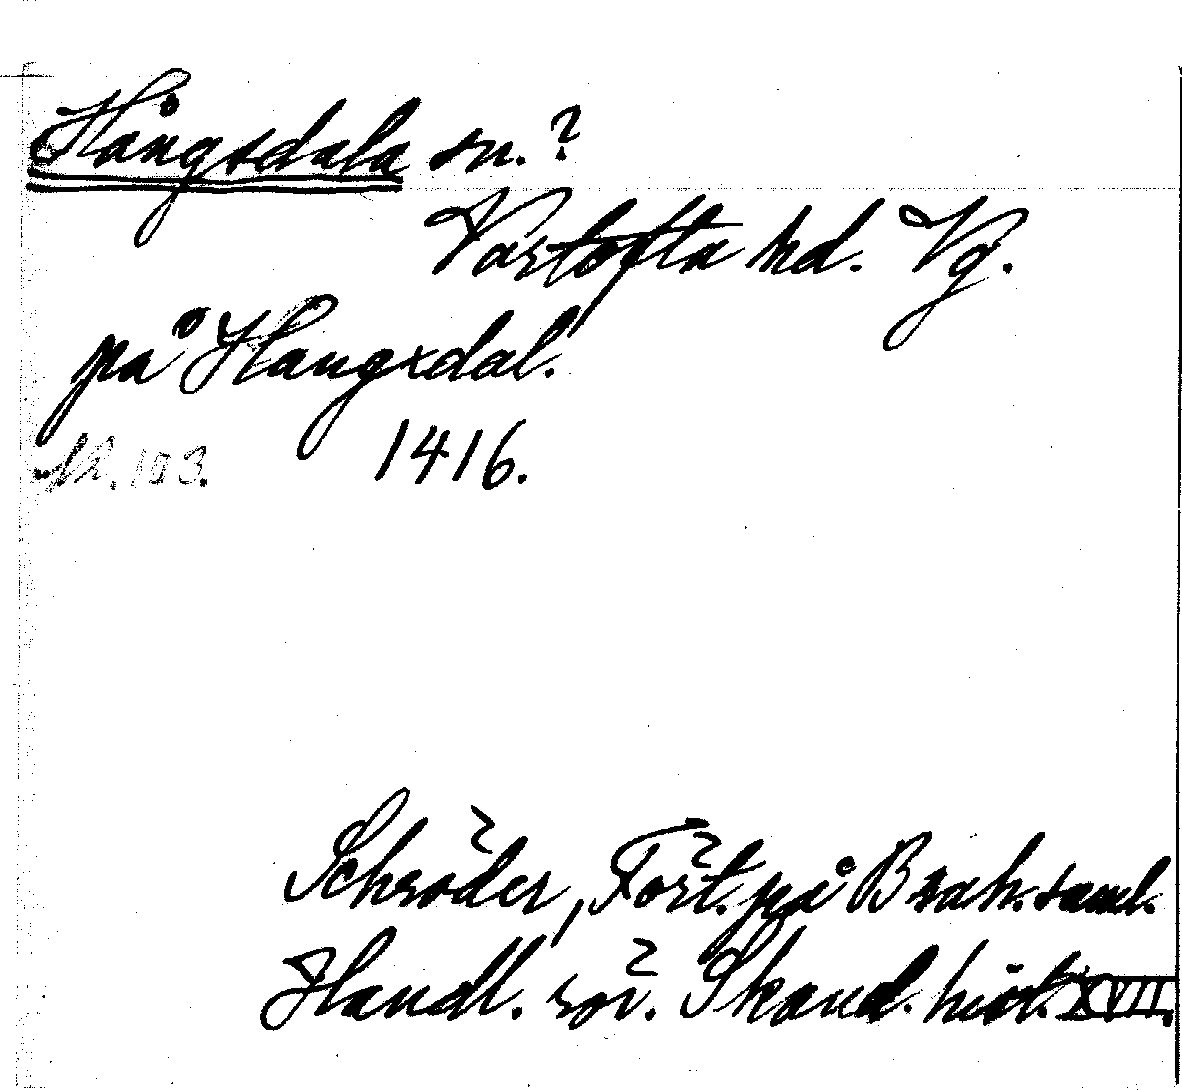 Hångsdala sn. ?
Vartofta hd. Vg.
på Hangxdal.
1416.
nr. 103.
Schröder, Fört. på Brah. saml.
Handl. rör. Skand. hist. XVII.